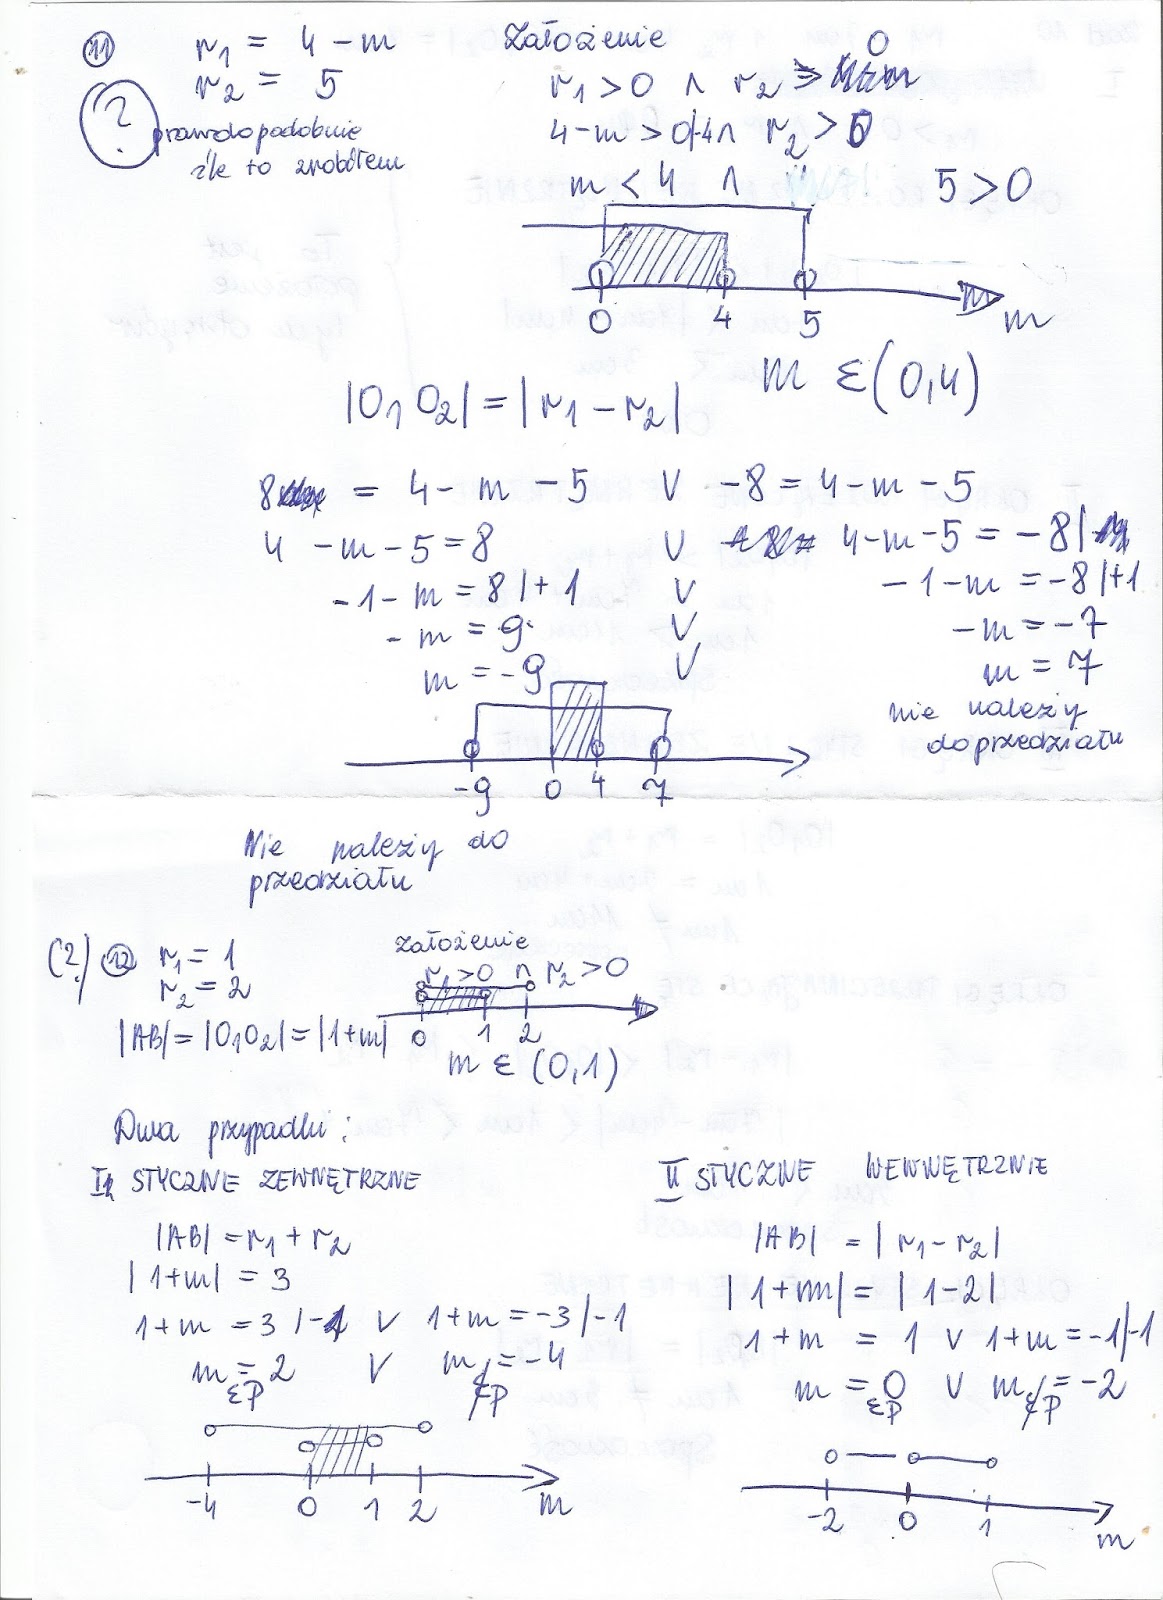 11 r₁ = 4 - m
r₂ = 5
? prawdopodobnie
źle to zrobiłem
Założenie
r₁ > 0 ∧ r₂ > 0
4 - m > 0 |-4 ∧ r₂ > 0
m < 4 ∧ 5 > 0
0 4 5 m
m ε (0,4)
|O₁O₂| = |r₁ - r₂|
8 = 4 - m - 5 V -8 = 4 - m - 5
4 - m - 5 = 8 V 4 - m - 5 = -8 |
-1 - m = 8 |+1 V -1 - m = -8 |+1
-m = 9 V -m = -7
m = -9 V m = 7
nie należy
do przedziału
-9 0 4 7
Nie należy do
przedziału
(?) 12 r₁ = 1
r₂ = 2
|AB| = |O₁O₂| = |1+m|
Założenie
r₁ > 0 ∧ r₂ > 0
0 1 2
m ε (0,1)
Dwa przypadki:
I STYCZNE ZEWNĘTRZNE
|AB| = r₁ + r₂
|1+m| = 3
1+m = 3 |-1 V 1+m = -3 |-1
m = 2 V m = -4
εP ∉P
-4 0 1 2 m
II STYCZNE WEWNĘTRZNIE
|AB| = |r₁ - r₂|
|1+m| = |1-2|
1+m = 1 V 1+m = -1 |-1
m = 0 V m = -2
εP ∉P
-2 0 1 m